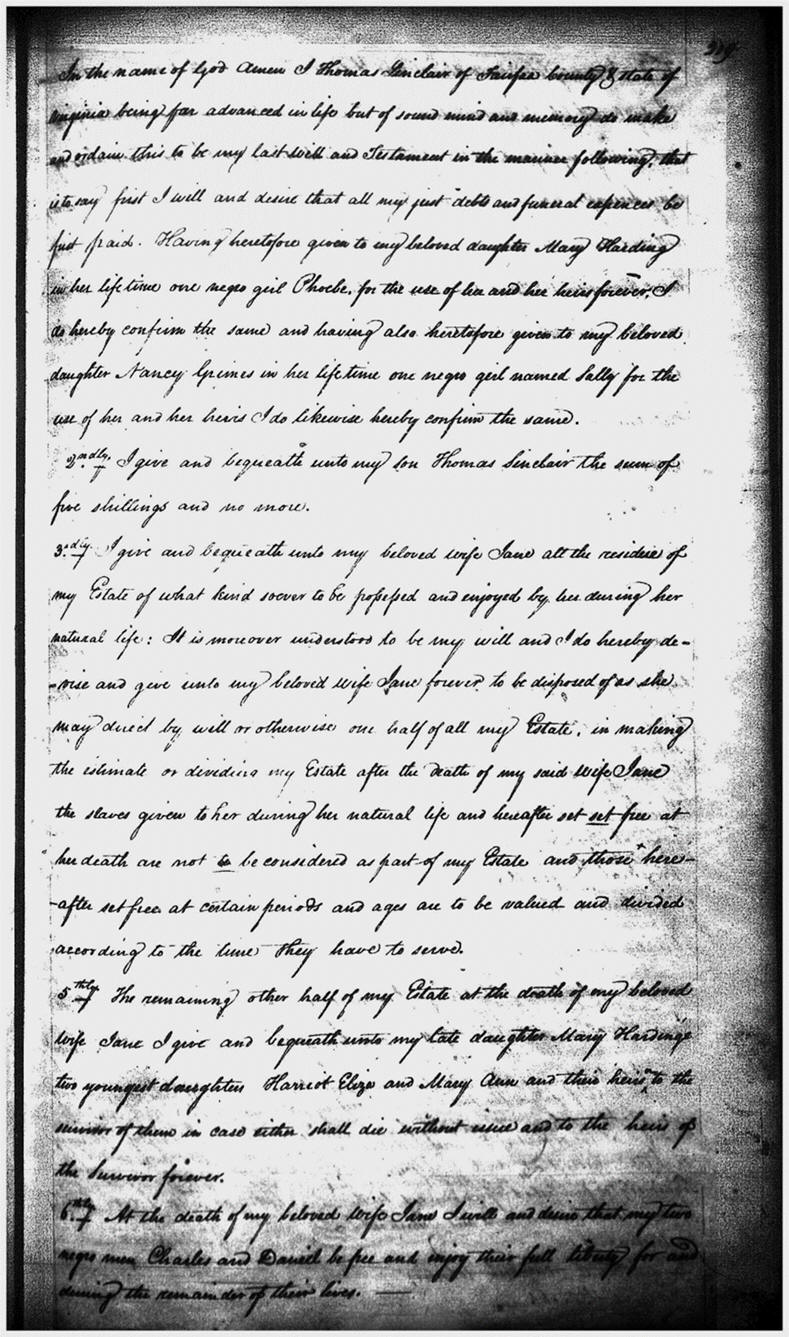 In the name of God Amen I Thomas Sinclair of Fairfax County & state of
Virginia being far advanced in life but of sound mind and memory do make
and ordain this to be my last will and Testament in the manner following, that
is to say first I will and desire that all my just debts and funeral expences be
first paid. Having heretofore given to my beloved daughter Mary Harding
in her life time one negro girl Phoebe, for the use of her and her heirs forever, I
do hereby confirm the same and having also heretofore given to my beloved
daughter Nancy Grimes in her life time one negro girl named Sally for the
use of her and her heris I do likewise hereby confirm the same.
2.ndly I give and bequeath unto my son Thomas Sinclair the sum of
five shillings and no more.
3.dly I give and bequeath unto my beloved wife Jane all the residue of
my Estate of what kind soever to be possessed and enjoyed by her during her
natural life: It is moreover understood to be my will and I do hereby de-
-vise and give unto my beloved wife Jane forever to be disposed of as she
may direct by will or otherwise one half of all my Estate, in making
the estimate or dividing my Estate after the death of my said wife Jane
the slaves given to her during her natural life and hereafter set set free at
her death are not to be considered as part of my Estate and those here-
-after set free at certain periods and ages are to be valued and divided
according to the time they have to serve.
5.thly The remaining other half of my Estate at the death of my beloved
wife Jane I give and bequeath unto my late daughter Mary Hardinge
two youngest daughters Harriot Eliza and Mary Ann and their heirs to the
survivor of them in case either shall die without issue and to the heirs of
the Survivor forever.
6.thly At the death of my beloved wife Jane I will and desire that my two
negro men Charles and Daniel be free and enjoy their full liberty for and
during the remainder of their lives.